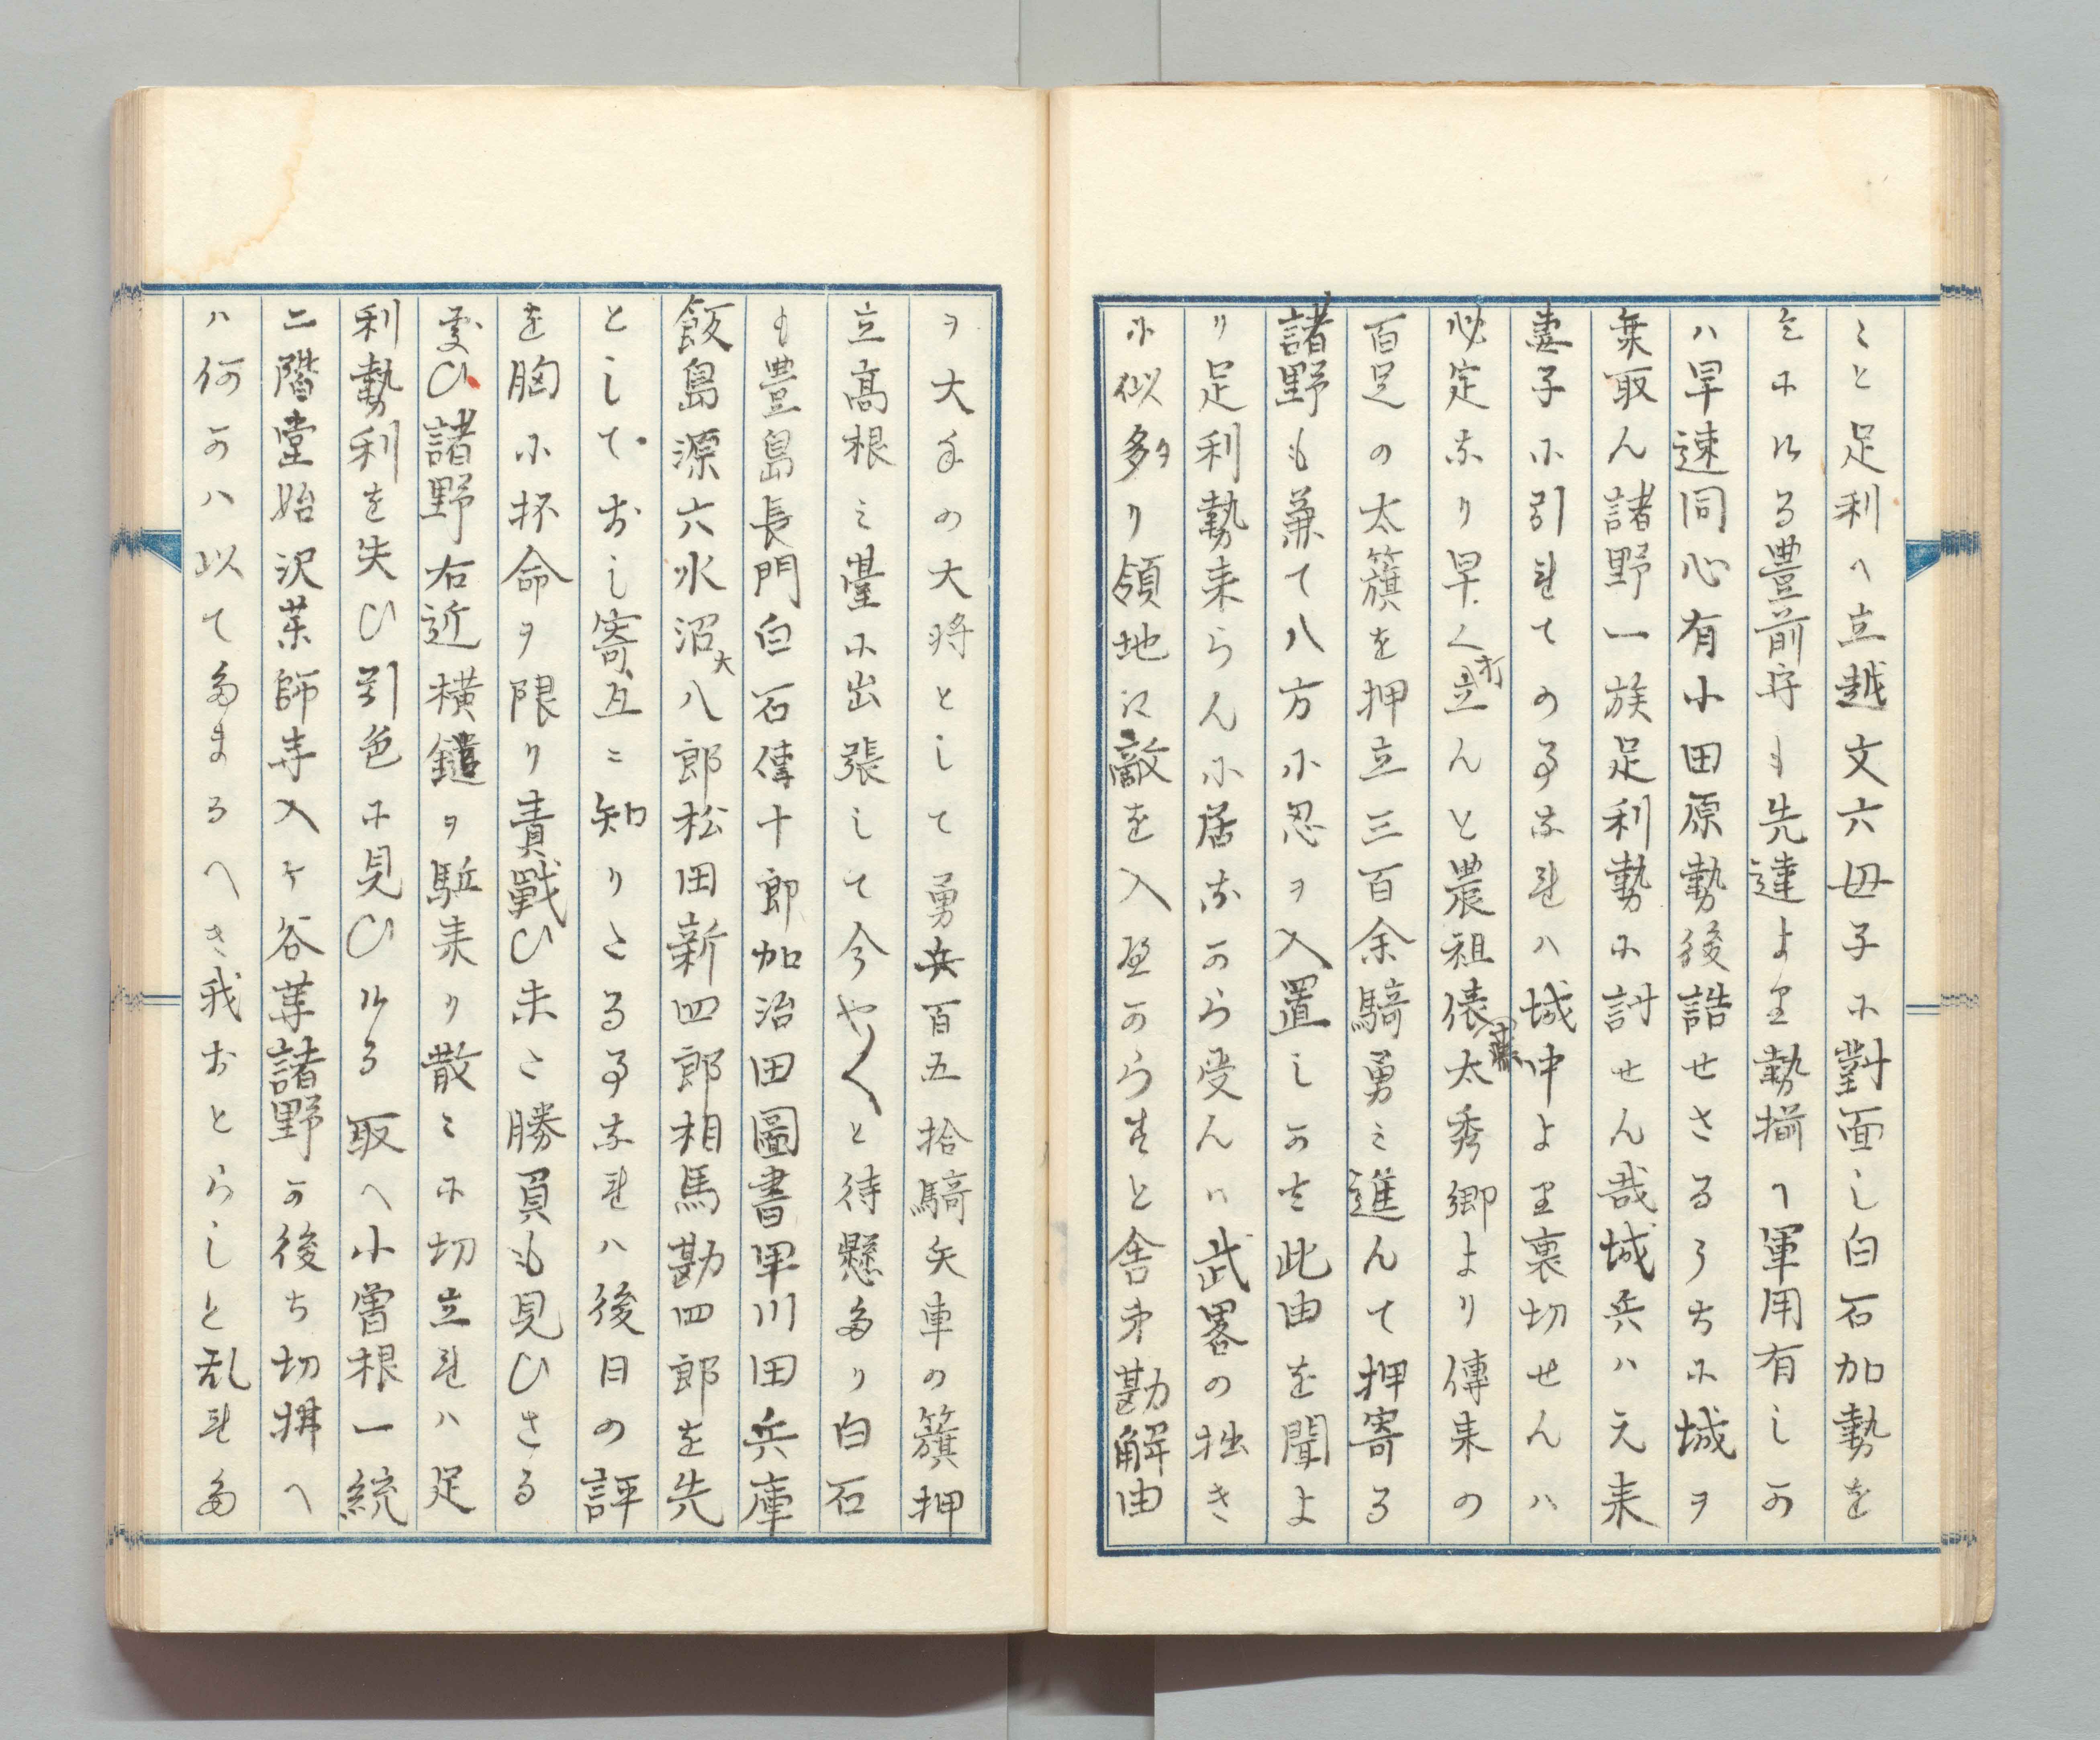 ミと足利へ立越文六母子ニ對面し白石加勢を
乞ふける豊前守も先達より勢揃へ軍用有しか
ハ早速同心有小田原勢後詰せさるうちに城ヲ
乗取ん諸野一族足利勢ニ討せん哉城兵ハ元来
妻子ニ引れての事なれハ城中より裏切せんハ
必定なり早く打立んと農祖俵藤太秀郷より傳来の
百足の太簱を押立三百余騎勇ミ進んて押寄る
諸野も兼て八方ニ忍ヲ入置しかは此由を聞よ
り足利勢来らんニ居なから受んハ武畧の拙き
ニ似タり領地に敵を入へからすと舎弟勘解由
ヲ大手の大将として勇兵百五拾騎矢車の簱押
立高根ミ臺ニ出張して今や〱と待懸たり白石
も豊島長門白石傳十郎加治田圖書早川田兵庫
飯島源六水沼大八郎松田新四郎相馬勘四郎を先
としておし寄互ニ知りたる事なれハ後日の評
を胸ニ抔命ヲ限り責戰ひ未た勝負も見ひさる
処ひ諸野右近横鑓ヲ駈来り散ミに切立れハ足
利勢利を失ひ引色ニ見ひける取へ小曽根一統
二階堂始沢薬師寺入ケ谷等諸野か後ち切拂へ
ハ何かハ以てたまるへき我おとらしと乱れた